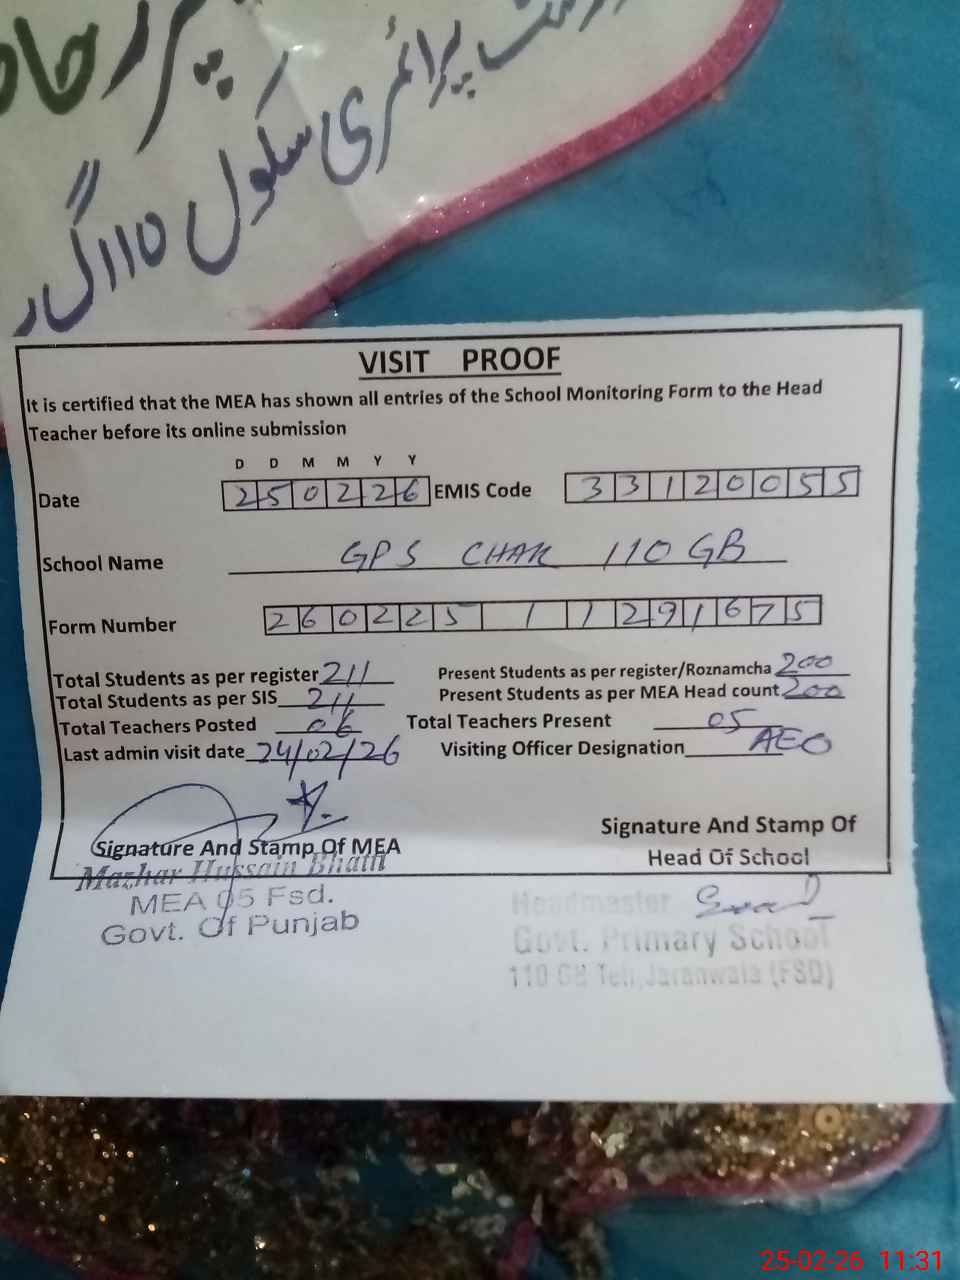 پرائمری سکول 110 گ ر
VISIT PROOF
It is certified that the MEA has shown all entries of the School Monitoring Form to the Head
Teacher before its online submission
D D M M Y Y
Date 250226 EMIS Code 33120055
School Name GPS CHAK 110 GB
Form Number 260225 1 1291675
Total Students as per register 211 Present Students as per register/Roznamcha 200
Total Students as per SIS 211 Present Students as per MEA Head count 200
Total Teachers Posted 06 Total Teachers Present 05
Last admin visit date 24/02/26 Visiting Officer Designation AEO
Signature And Stamp Of MEA Signature And Stamp Of
Head Of School
Mazhar Hussain Bhatti
MEA 05 Fsd.
Govt. Of Punjab
Headmaster
Govt. Primary School
110 GB Teh, Jaranwala (FSD)
25-02-26 11:31